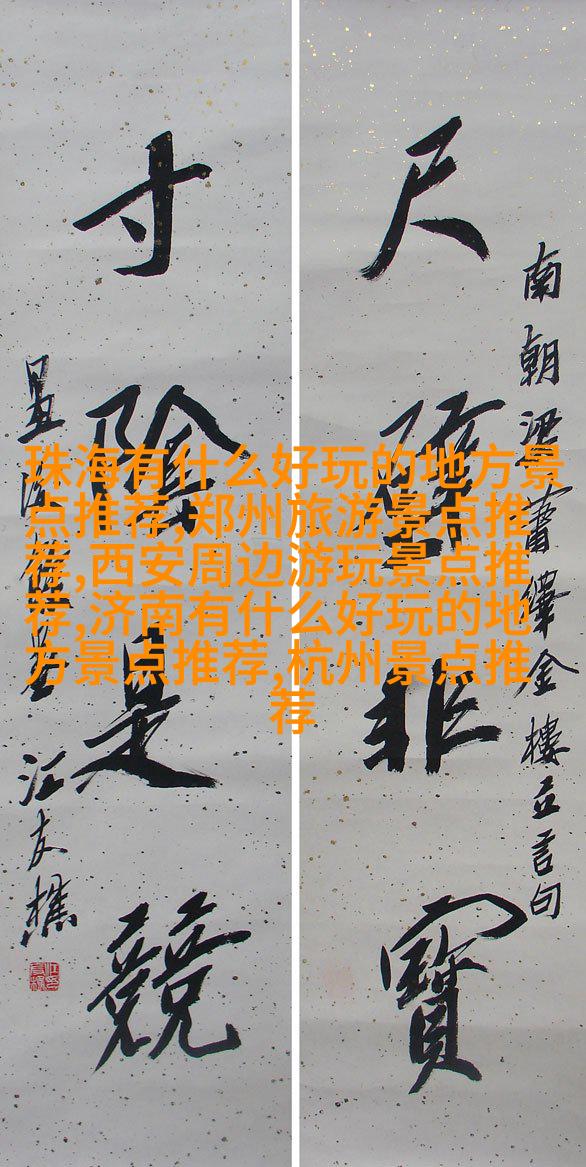 珠海有什么好玩的地方景
点推荐,郑州旅游景点推
荐,西安周边游玩景点推
荐,济南有什么好玩的地
方景点推荐,杭州景点推
荐
南朝梁蕭繹金樓立言句
尺璧非寶
寸陰是競
汪友樵